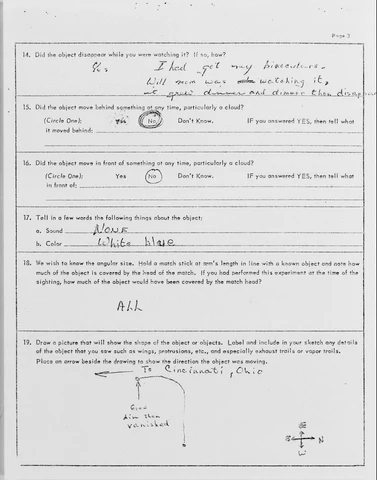 Page 2
14. Did the object disappear while you were watching it? If so, how?
Yes I had got my binoculars.
Will mom was watching it,
it grew dimmer and dimmer then disappeared
15. Did the object move behind something at any time, particularly a cloud?
(Circle One): Yes No Don't Know. IF you answered YES, then tell what
it moved behind:
16. Did the object move in front of something at any time, particularly a cloud?
(Circle One): Yes No Don't Know. IF you answered YES, then tell what
in front of:
17. Tell in a few words the following things about the object:
a. Sound NONE
b. Color White blaze
18. We wish to know the angular size. Hold a match stick at arm's length in line with a known object and note how
much of the object is covered by the head of the match. If you had performed this experiment at the time of the
sighting, how much of the object would have been covered by the match head?
ALL
19. Draw a picture that will show the shape of the object or objects. Label and include in your sketch any details
of the object that you saw such as wings, protrusions, etc., and especially exhaust trails or vapor trails.
Place an arrow beside the drawing to show the direction the object was moving.
To Cincinnati, Ohio
dim then
vanished
N
W